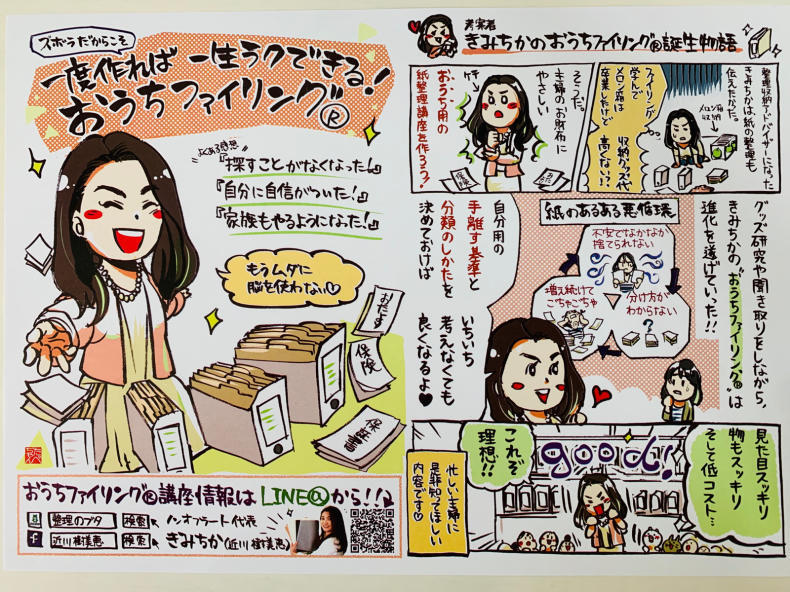 ズボラだからこそ
一度作れば 一生ラクできる!
おうちファイリング®
よくある感想
『探すことがなくなった!』
『自分に自信がついた!』
『家族もやるようになった!』
もうムダに
脳を使わない♡
おたす
保険
保証書
おうちファイリング®講座情報は LINE@から!!
整理のプタ 検索 ノンオブラート代表
近川樹美恵 検索 きみちか(近川樹美恵)
考案者
きみちかのおうちファイリング®誕生物語
整理収納アドバイザーになった
きみちかは、紙の整理も
伝えたかった。
メロン箱
収納
ファイリングが
学んで
メロン箱は
卒業したけど
収納グッズ代
高くない!?
そうだ。
主婦のお財布に
やさしい
ケチ
おうち用の
紙整理講座を作ろう!
保険
グッズ研究や聞き取りをしながら、
きみちかの“おうちファイリング®”は
進化を遂げていった!!
紙のあるある悪循環
不安でなかなか
捨てられない
分け方が
わからない
増え続けて
ごちゃごちゃ
自分用の
手離す基準と
分類のしかたを
決めておけば
いちいち
考えなくても
良くなるよ♥
見た目スッキリ
物もスッキリ
そして低コスト…
good!
これぞ
理想!!
忙しい主婦に
是非知ってほしい
内容です♡